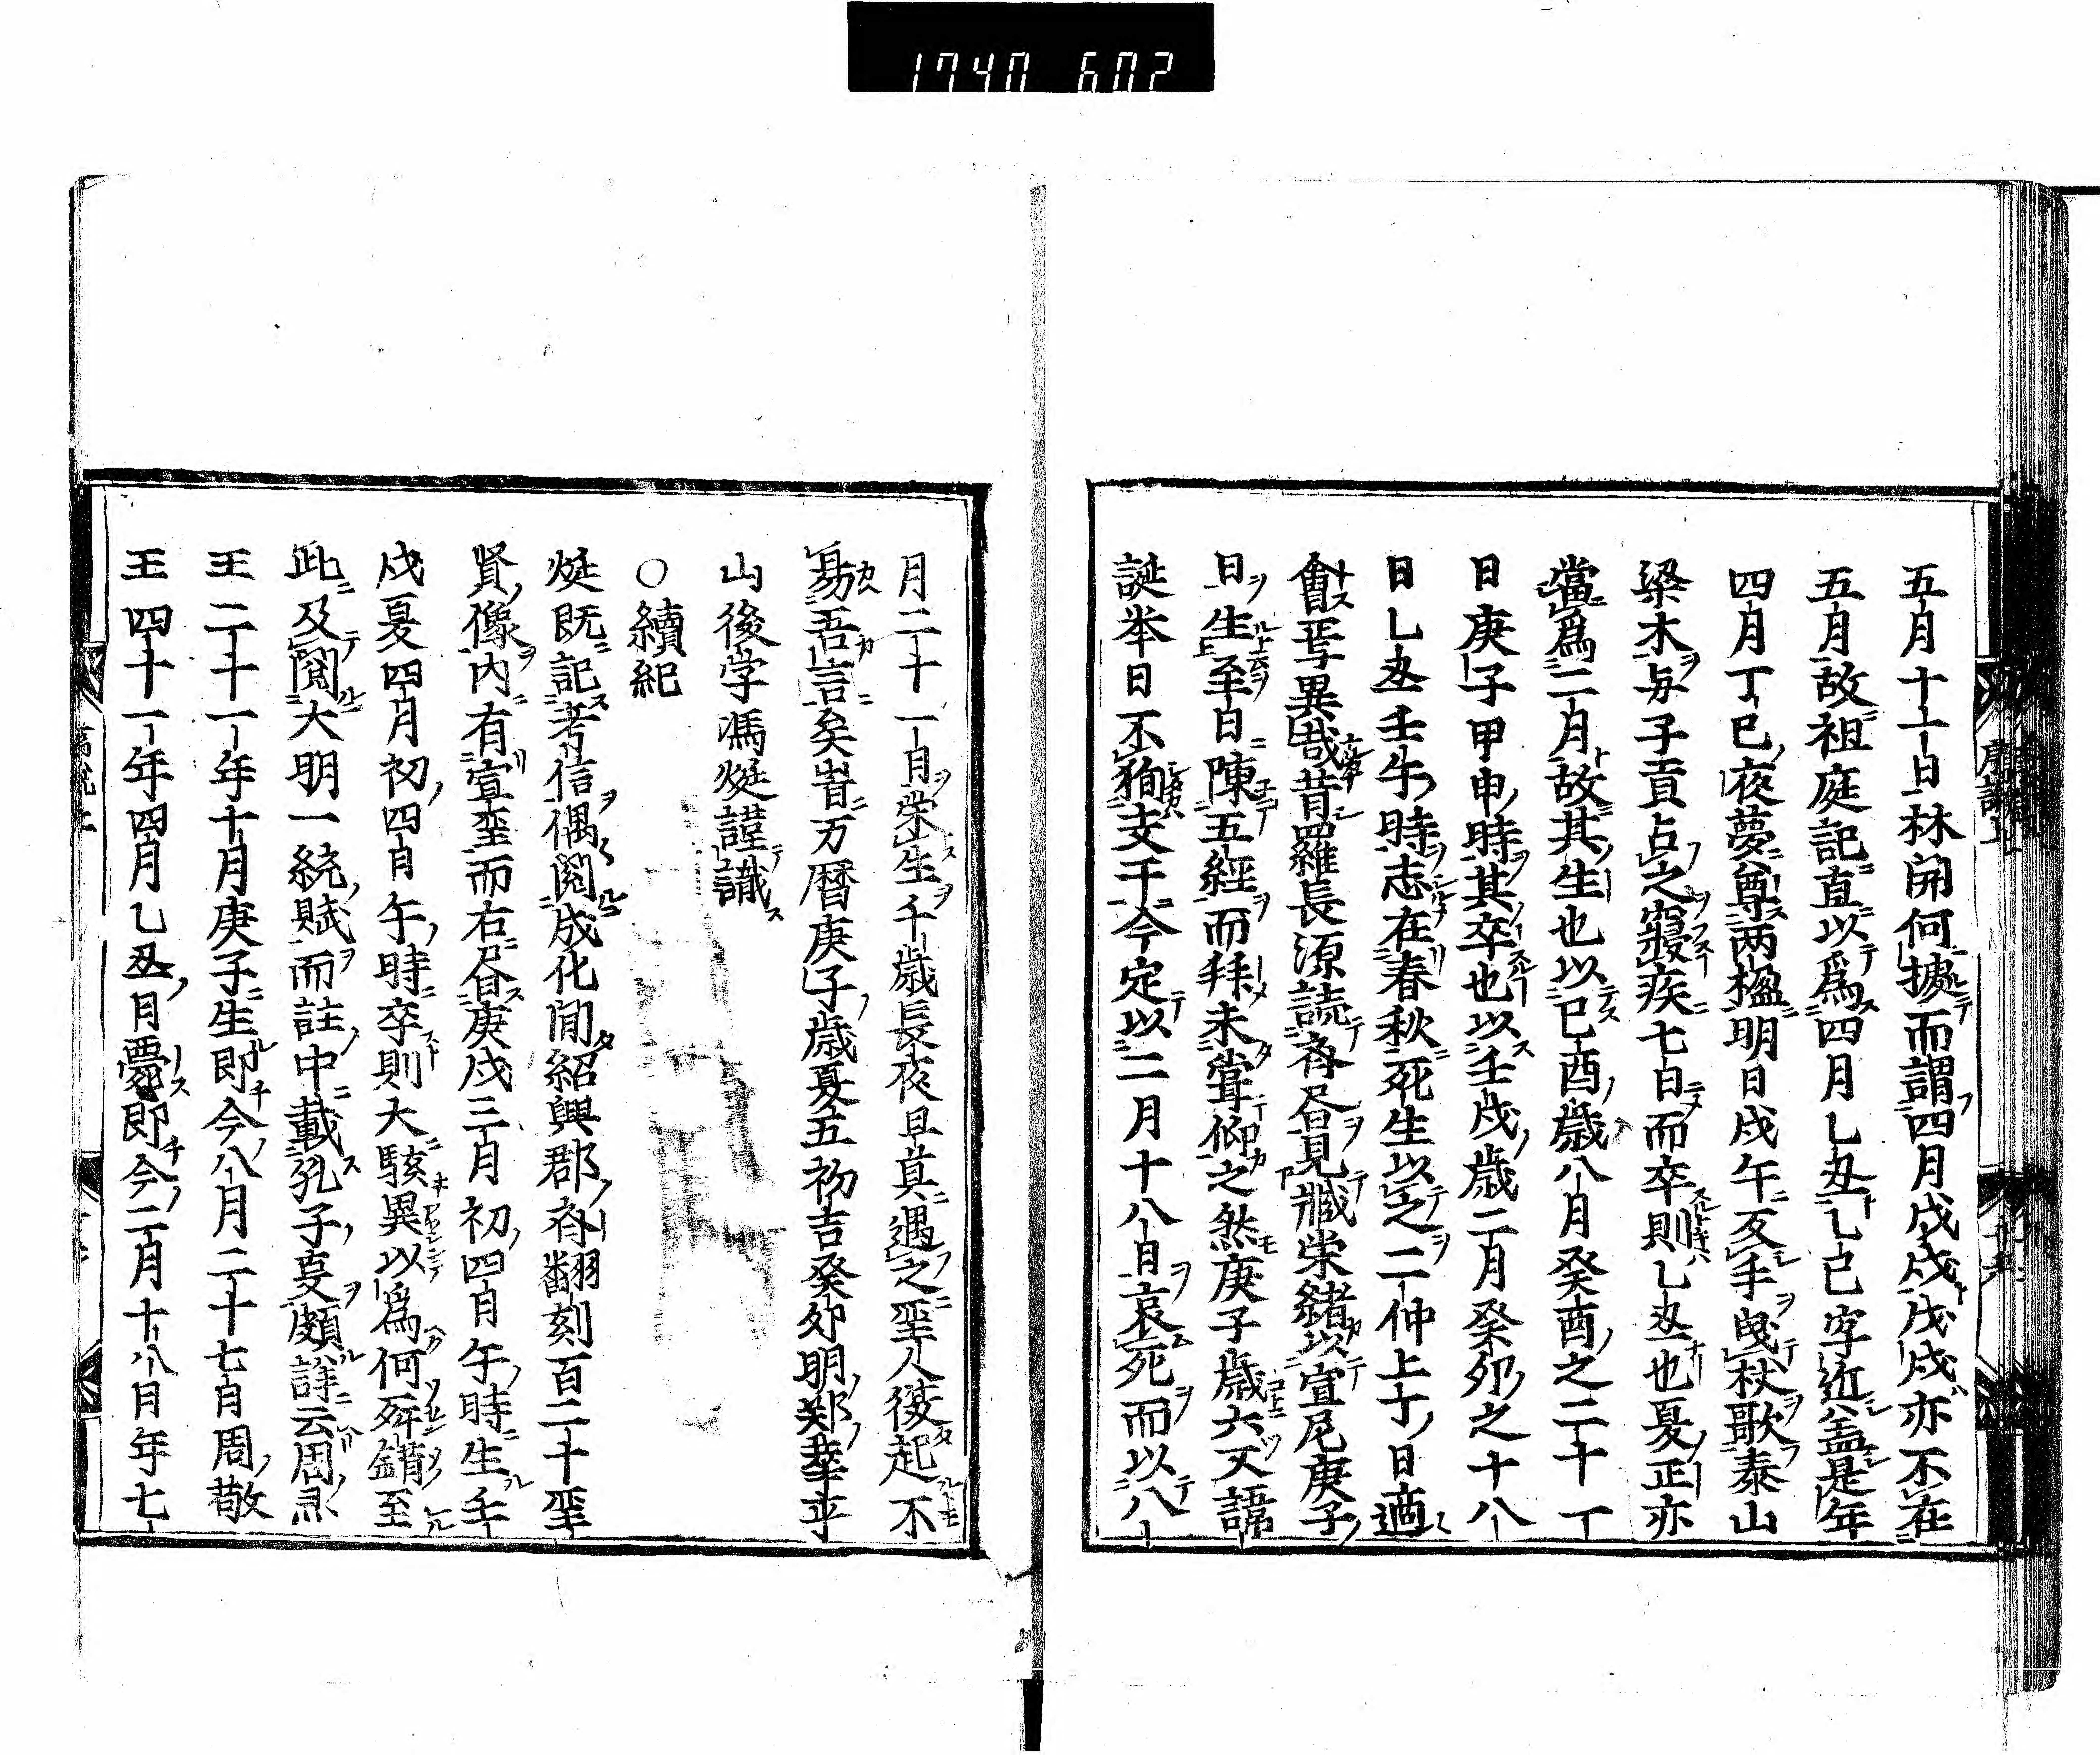 1740 602
五月十一日林開何據而謂四月戊戌戊戌亦不在
五月故祖庭記直以爲四月乚丑乚巳字近盖是年
四月丁巳夜夢尊两楹明日戊午反手曳杖歌泰山
梁木与子貢占之寢疾七日而卒則乚丑也夏正亦
當爲二月故其生也以巳酉歳八月癸酉之二十一
日庚子甲申時其卒也以壬戌歳二月癸卯之十八
日乚丑壬午時志在春秋死生以之二仲上丁日適
會焉异哉昔羅長源読各見臧栄緒以宣尼庚子
日生至日陳五經而拜未甞仰之然庚子歳六又諱
誕举日不狥支干今定以二月十八日哀死而以八
月二十一日栄生千歳長夜旦莫遇之聖人復起不
易吾言矣旹万暦庚子歳夏五初吉癸卯明郑幸乎
山後学馮烶謹識
○續紀
烶既記考信偶閱成化間紹興郡斉翻刻百二十聖
賢像内有宣聖而右畨庚戌三月初四日午時生壬
戌夏四月初四日午時卒則大駭異以爲何舛錯至
此及閱大明一統賦而註中載孔子支頗詳云周灵
王二十一年十月庚子生即今八月二十七日周敬
王四十一年四月乙丑日薨即今二月十八日年七